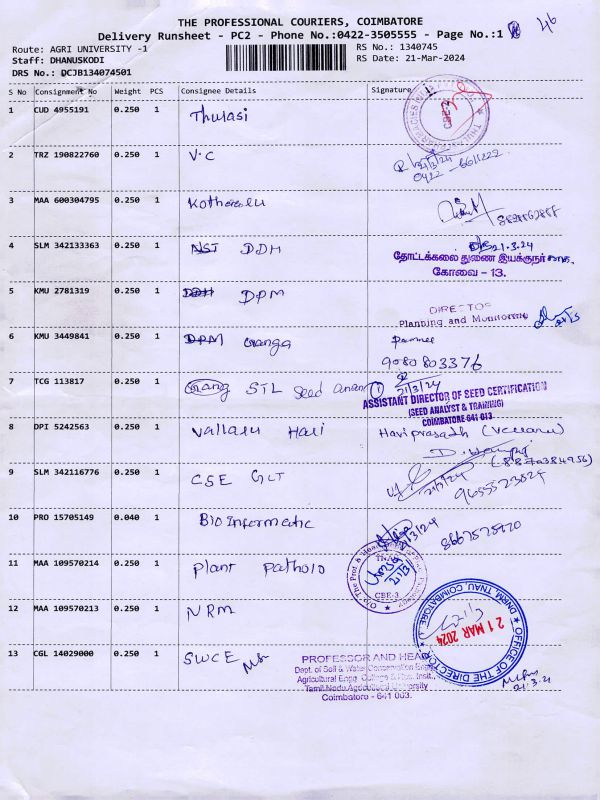 THE PROFESSIONAL COURIERS, COIMBATORE
Delivery Runsheet - PC2 - Phone No.:0422-3505555 - Page No.:1
46
Route: AGRI UNIVERSITY -1
RS No.: 1340745
Staff: DHANUSKODI
RS Date: 21-Mar-2024
DRS No.: DCJB134074501
S No Consignment No Weight PCS Consignee Details Signature
1 CUD 4955191 0.250 1 Thulasi
2 TRZ 190822760 0.250 1 V.C
21/3/24
0422
3 MAA 600304795 0.250 1
4 SLM 342133363 0.250 1 NST DDH
21.3.24
தோட்டக்கலை துணை இயக்குநர்
கோவை - 13.
5 KMU 2781319 0.250 1 DDH DPM
DIRECTOR
Planning and Monitoring
6 KMU 3449841 0.250 1 DPM Ganga
9080803376
7 TCG 113817 0.250 1 Gang STL Seed
21/3/24
ASSISTANT DIRECTOR OF SEED CERTIFICATION
(SEED ANALYST & TRAINING)
COIMBATORE 641 013
8 DPI 5242563 0.250 1 Vallasu Hari
Hari prasadh
9 SLM 342116776 0.250 1 CSE
21/3/24
10 PRO 15705149 0.040 1 Bio Informatic
21/3/24
11 MAA 109570214 0.250 1 Plant Patholo
CBE-3
12 MAA 109570213 0.250 1 NRM
OFFICE OF THE DIRECTOR, DNRM, TNAU, COIMBATORE
21 MAR 2024
13 CGL 14029000 0.250 1 SWCE
PROFESSOR AND HEAD
Dept. of Soil & Water Conservation Engg.
Agricultural Engg. College & Res. Instt.,
Tamil Nadu Agricultural University
Coimbatore - 641 003.
21.3.21